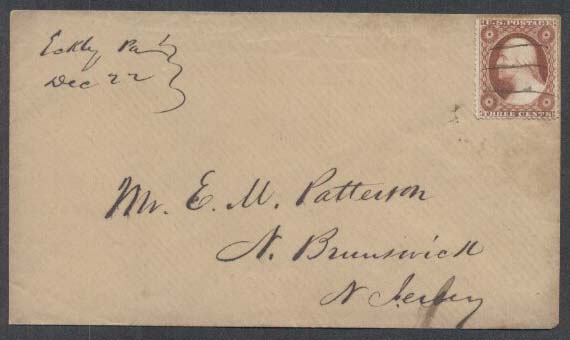 Eckley Pa
Dec 22
U.S. POSTAGE
THREE CENTS
Mr. E. M. Patterson
N. Brunswick
N Jersey